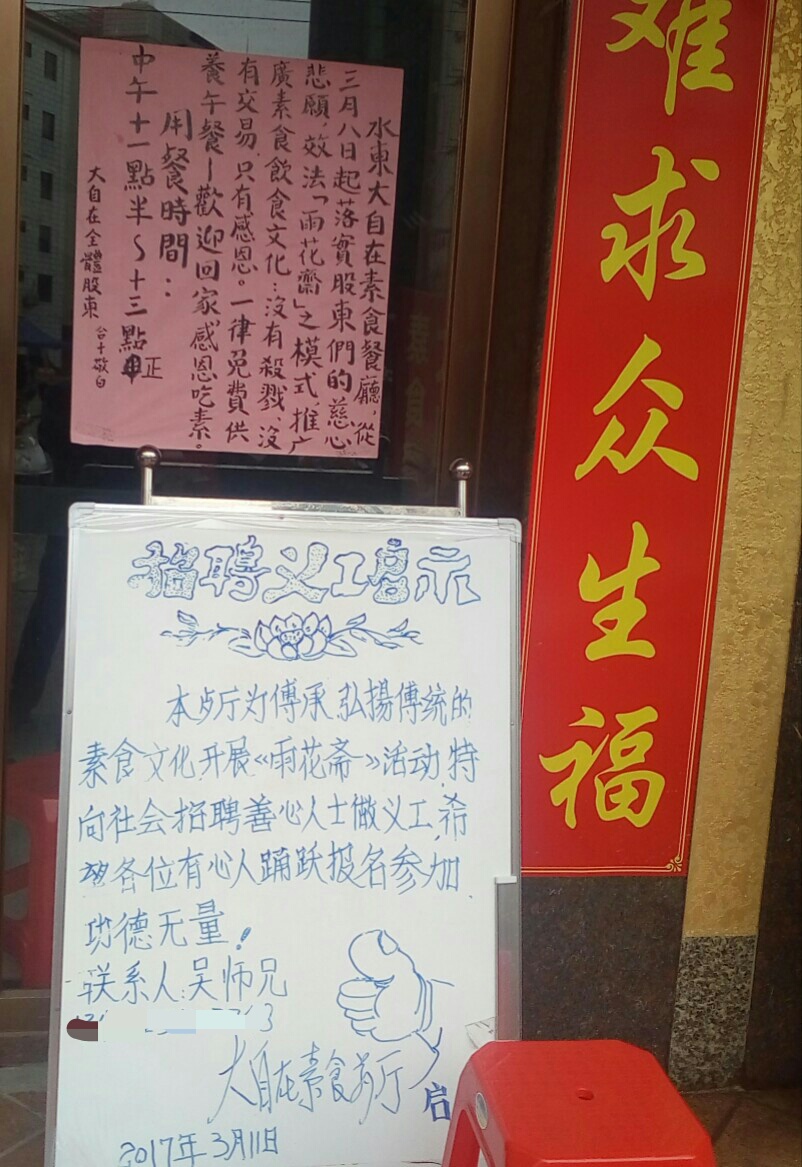 水東大自在素食餐廳，從
三月八日起落實股東們的慈心
悲願，效法「雨花齋」之模式，推广
廣素食飲食文化：沒有殺戮、沒
有交易、只有感恩。一律免費供
養午餐！歡迎回家感恩吃素。
用餐時間：
中午十一點半～十三點正
大自在全體股東 合十敬白
招聘义工启示
本歺厅为傳承弘揚傳统的
素食文化开展《雨花斋》活动,特
向社会招聘善心人士做义工,希
望各位有心人踊跃报名参加
功德无量！
联系人:吴师兄
大自在素食歺厅 启
2017年3月11日
难求众生福